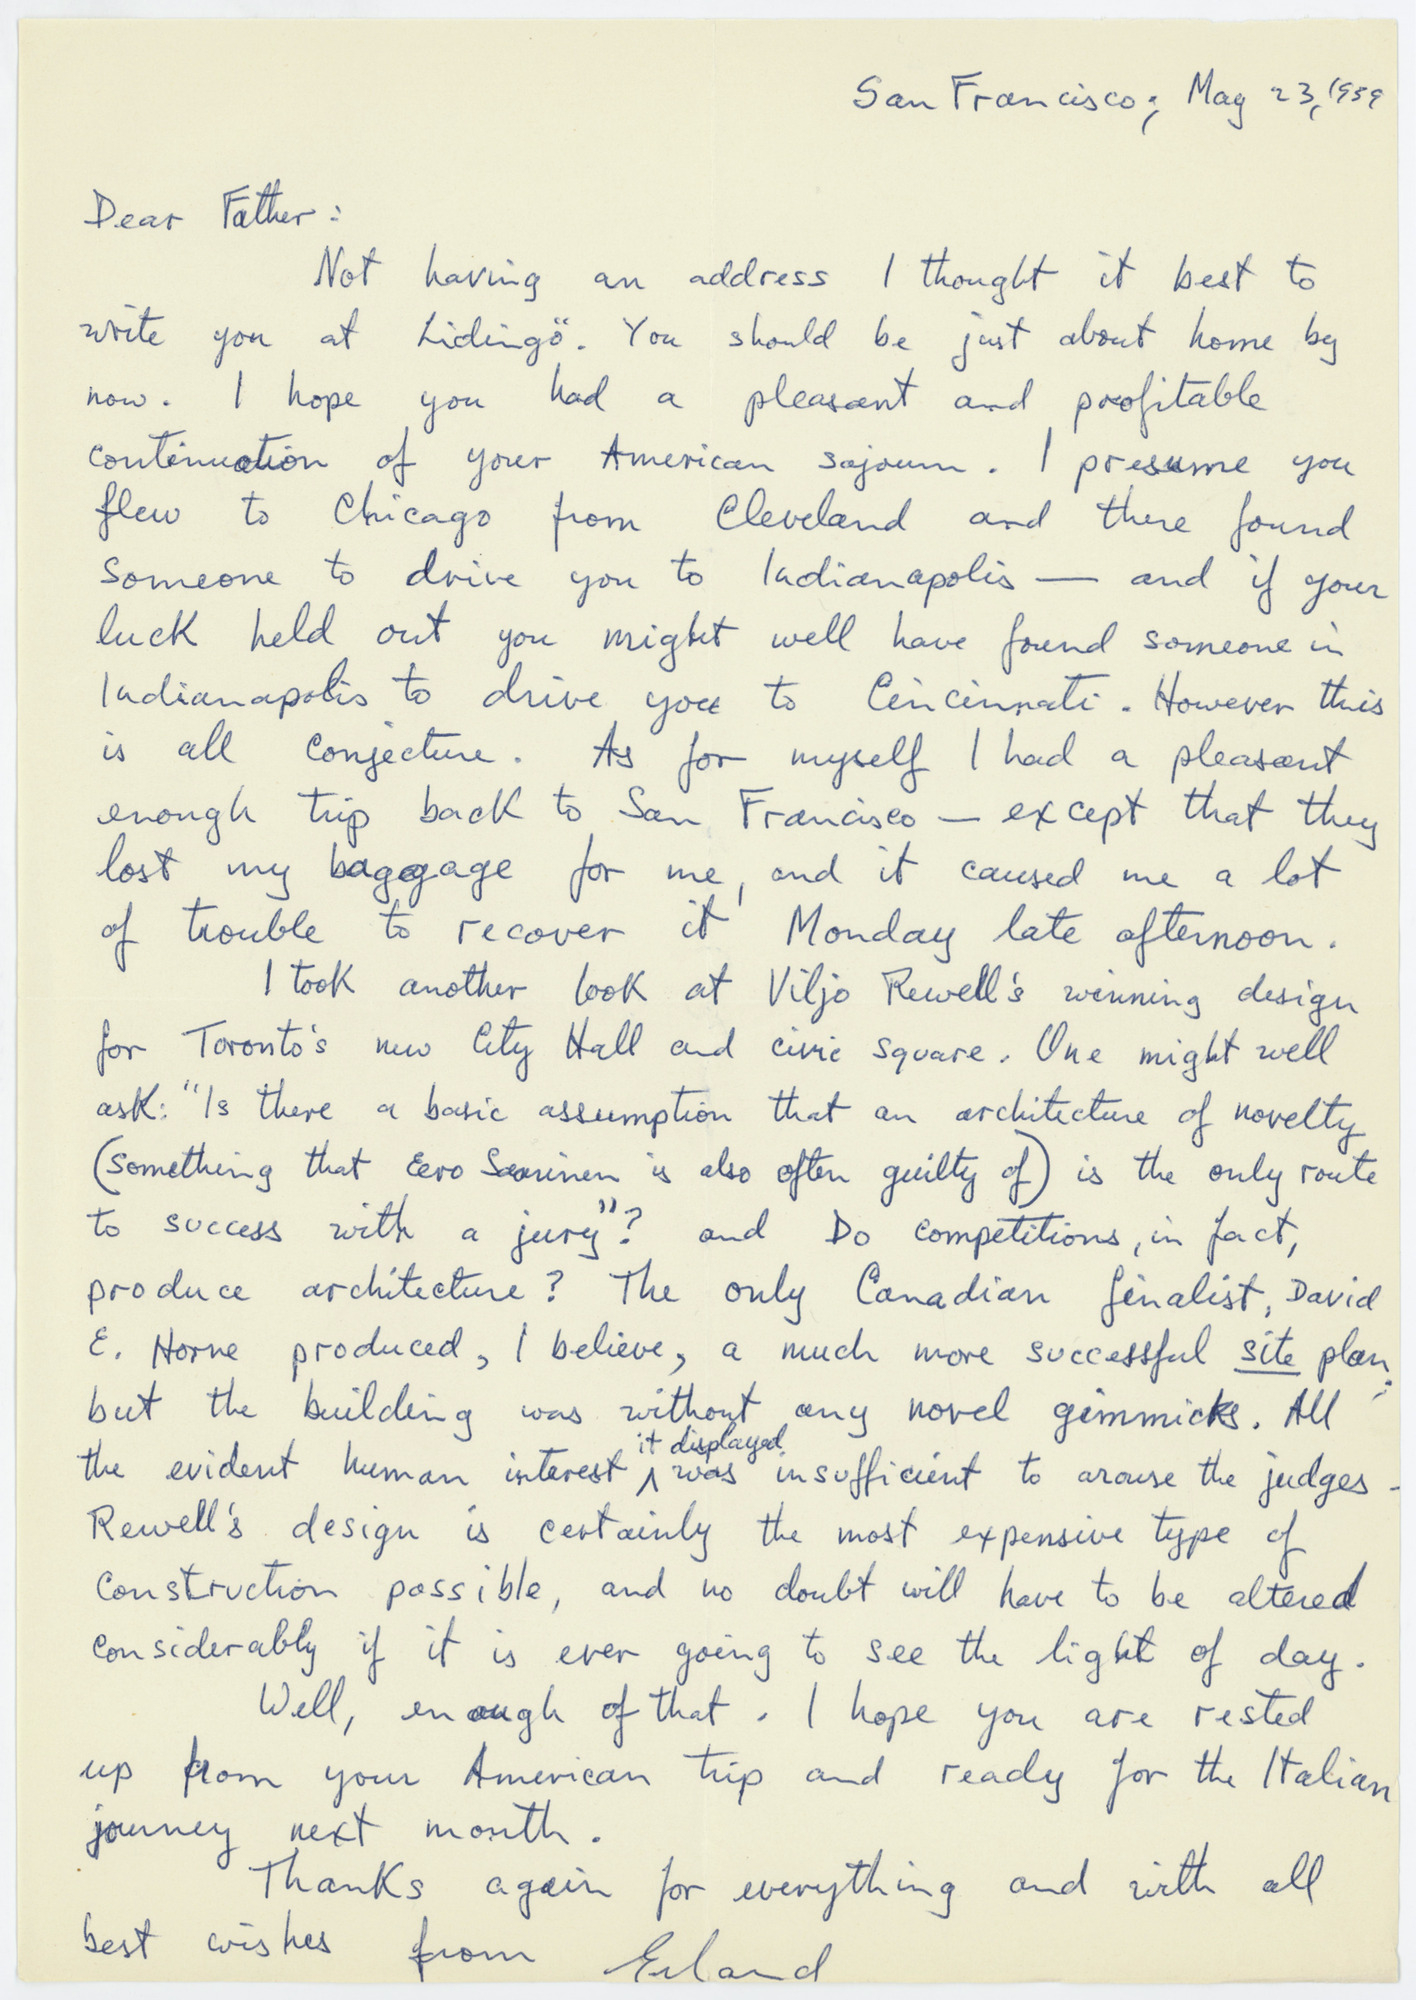 San Francisco; May 23, 1959
Dear Father:
Not having an address I thought it best to
write you at Lidingö. You should be just about home by
now. I hope you had a pleasant and profitable
continuation of your American sojourn. I presume you
flew to Chicago from Cleveland and there found
someone to drive you to Indianapolis — and if your
luck held out you might well have found someone in
Indianapolis to drive you to Cincinnati. However this
is all conjecture. As for myself I had a pleasant
enough trip back to San Francisco — except that they
lost my baggage for me, and it caused me a lot
of trouble to recover it Monday late afternoon.
I took another look at Viljo Rewell's winning design
for Toronto's new City Hall and civic square. One might well
ask: "Is there a basic assumption that an architecture of novelty
(something that Eero Saarinen is also often guilty of) is the only route
to success with a jury"? and Do competitions, in fact,
produce architecture? The only Canadian finalist, David
E. Horne produced, I believe, a much more successful site plan;
but the building was without any novel gimmicks. All
the evident human interest it displayed was insufficient to arouse the judges -
Rewell's design is certainly the most expensive type of
construction possible, and no doubt will have to be altered
considerably if it is ever going to see the light of day.
Well, enough of that. I hope you are rested
up from your American trip and ready for the Italian
journey next month.
Thanks again for everything and with all
best wishes from Erland